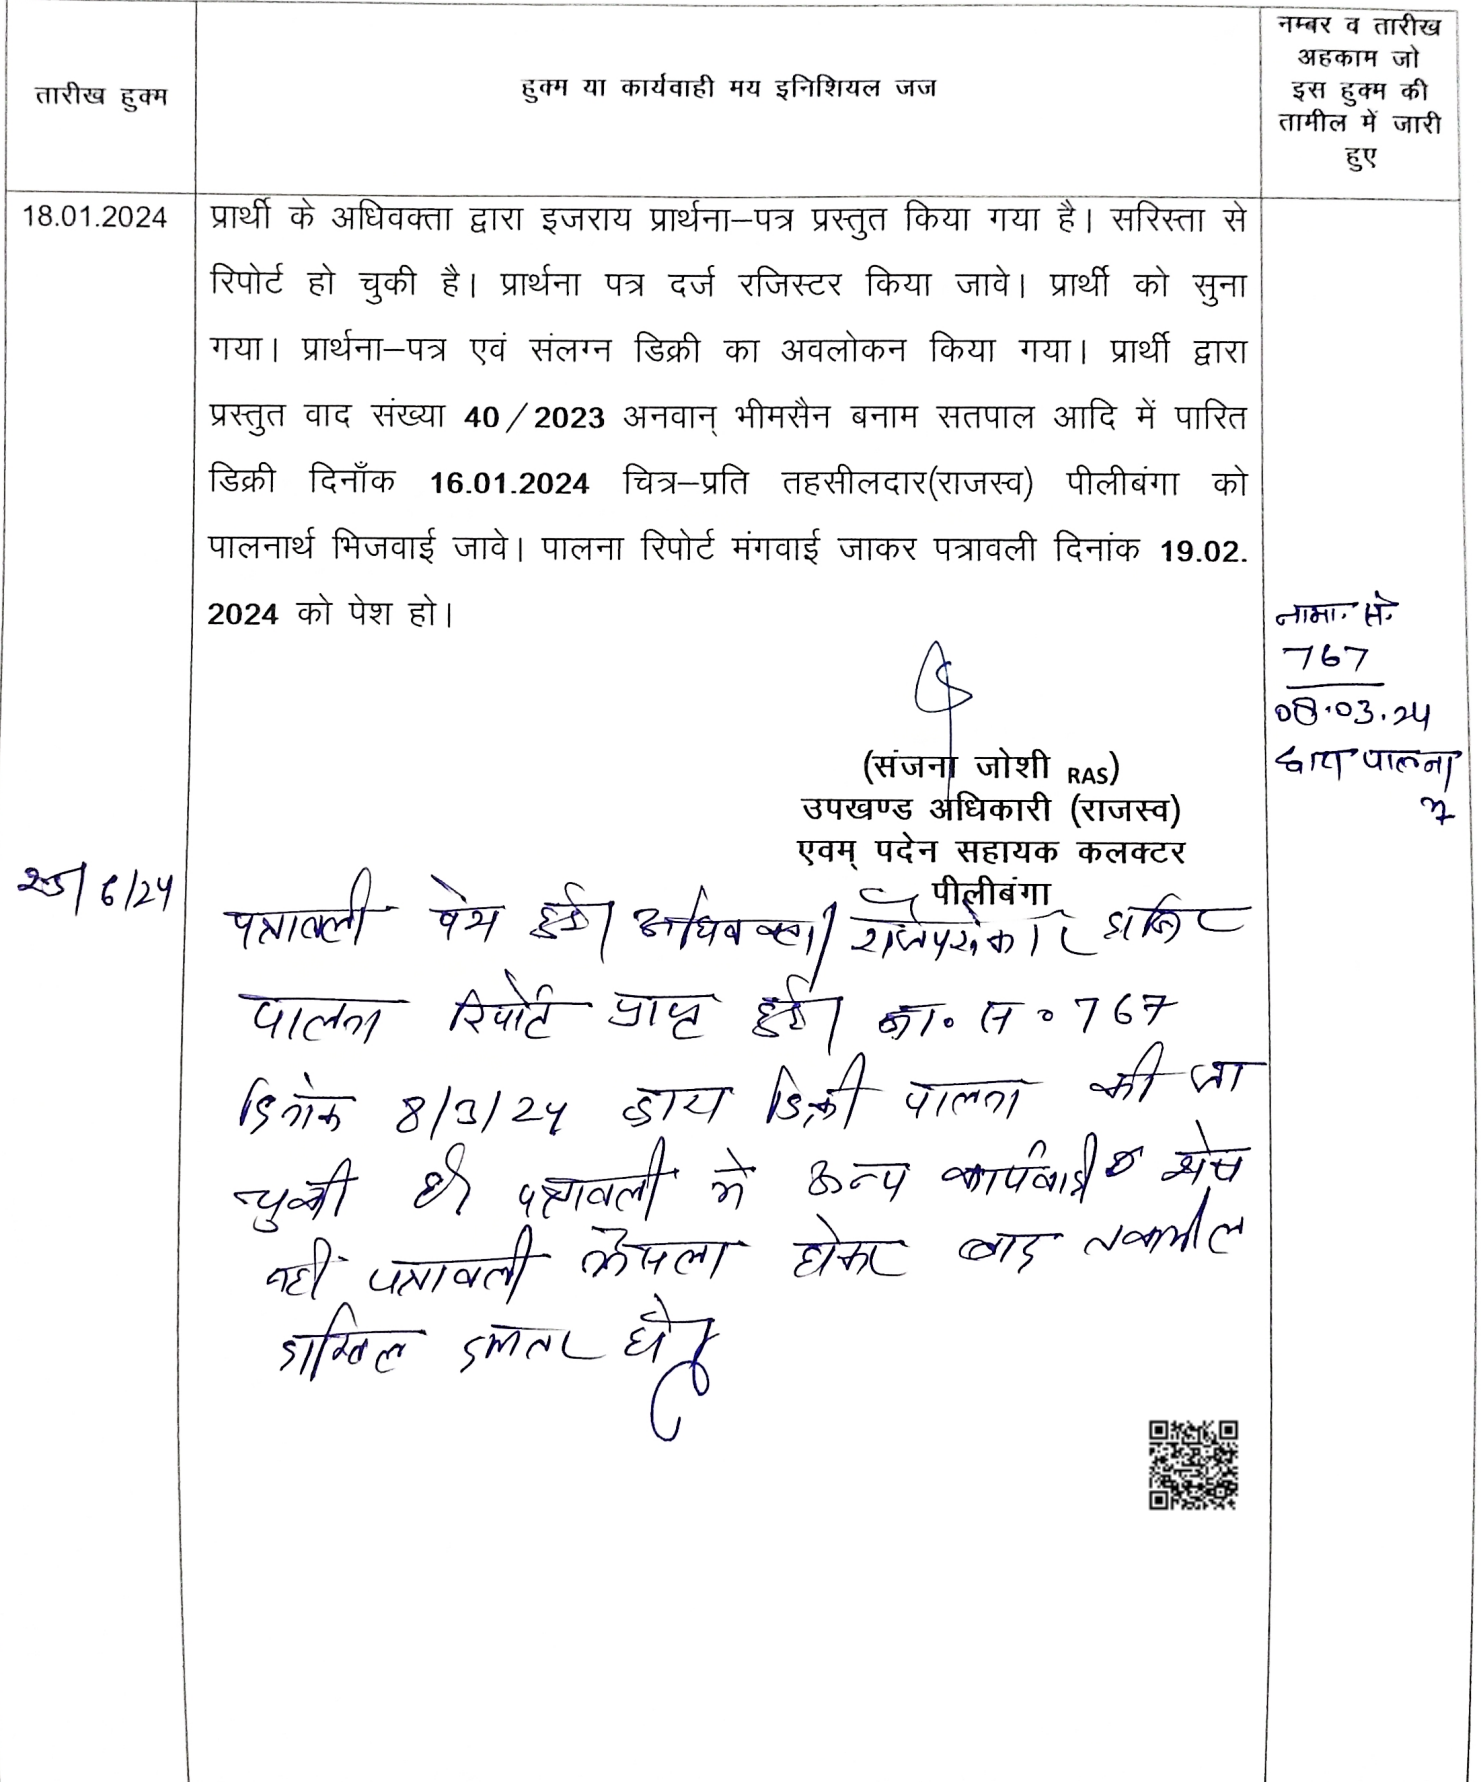 तारीख हुक्म
हुक्म या कार्यवाही मय इनिशियल जज
नम्बर व तारीख
अहकाम जो
इस हुक्म की
तामील में जारी
हुए
18.01.2024
प्रार्थी के अधिवक्ता द्वारा इजराय प्रार्थना–पत्र प्रस्तुत किया गया है। सरिस्ता से
रिपोर्ट हो चुकी है। प्रार्थना पत्र दर्ज रजिस्टर किया जावे। प्रार्थी को सुना
गया। प्रार्थना–पत्र एवं संलग्न डिक्री का अवलोकन किया गया। प्रार्थी द्वारा
प्रस्तुत वाद संख्या 40/2023 अनवान् भीमसैन बनाम सतपाल आदि में पारित
डिक्री दिनाँक 16.01.2024 चित्र–प्रति तहसीलदार(राजस्व) पीलीबंगा को
पालनार्थ भिजवाई जावे। पालना रिपोर्ट मंगवाई जाकर पत्रावली दिनांक 19.02.
2024 को पेश हो।
नामा. सं.
767
08.03.24
द्वारा पालना
(संजना जोशी RAS)
उपखण्ड अधिकारी (राजस्व)
एवम् पदेन सहायक कलक्टर
पीलीबंगा
25/6/24
पत्रावली पेश हुई। अधिवक्ता
पालना रिपोर्ट प्राप्त हुई। ना. स. 767
दिनांक 8/3/24 द्वारा डिक्री पालना की जा
चुकी है। पत्रावली में अन्य कार्यवाही शेष
नहीं पत्रावली फैसला होकर बाद तकमील
दाखिल दफ्तर हो।